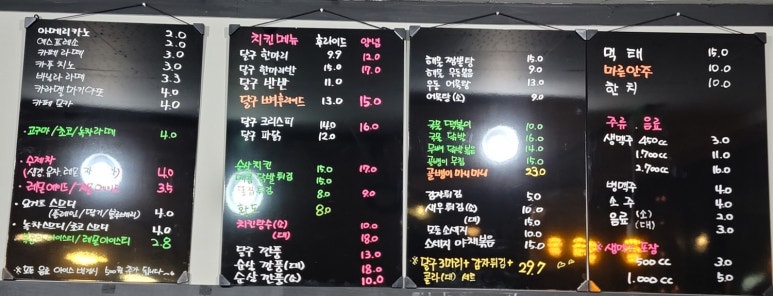 아메리카노 2.0
에스프레소 2.0
카페 라떼 3.0
카푸치노 3.0
바닐라 라떼 3.3
카라멜 마키아또 4.0
카페 모카 4.0
·고구마/초코/녹차라떼 4.0
·수제차
4.0
레몬에이드/ 3.5
·요거트 스무디
(플레인/딸기/블루베리) 4.0
·녹차스무디/초코 스무디 4.0
아이스티/레몬아이스티 2.8
※ 모든 음료 아이스 변경시 500원 추가 됩니다
치킨메뉴 후라이드 양념
닭구 한마리 9.9 12.0
닭구 한마리반 15.0 17.0
닭구 반반 11.0
닭구 뼈후라이드 13.0 15.0
닭구 크리스피 14.0 16.0
닭구 파닭 12.0
순살치킨 15.0 17.0
튀김 15.0
튀김 8.0 9.0
8.0
치킨탕수(소) 10.0
(대) 18.0
닭구 깐풍 13.0
순살 깐풍(대) 18.0
순살 깐풍(소) 10.0
해물 짬뽕탕 15.0
해물 우동볶음 9.0
우동 어묵탕 13.0
어묵탕(소) 9.0
국물 떡볶이 10.0
국물 닭발 16.0
무뼈 닭발볶음 14.0
골뱅이 무침 15.0
골뱅이 마시마시 23.0
감자튀김 5.0
새우튀김(소) 10.0
(대) 15.0
모듬소세지 10.0
소세지 야채볶음 15.0
※ 닭구 3마리+감자튀김+
콜라(대) 세트 29.7
먹태 15.0
마른안주 10.0
한치 10.0
주류. 음료
생맥주 450cc 3.0
1.700cc 11.0
2.700cc 16.0
병맥주 4.0
소주 4.0
음료(소) 2.0
(대) 3.0
※ 생맥주포장
500cc 3.0
1.000cc 5.0